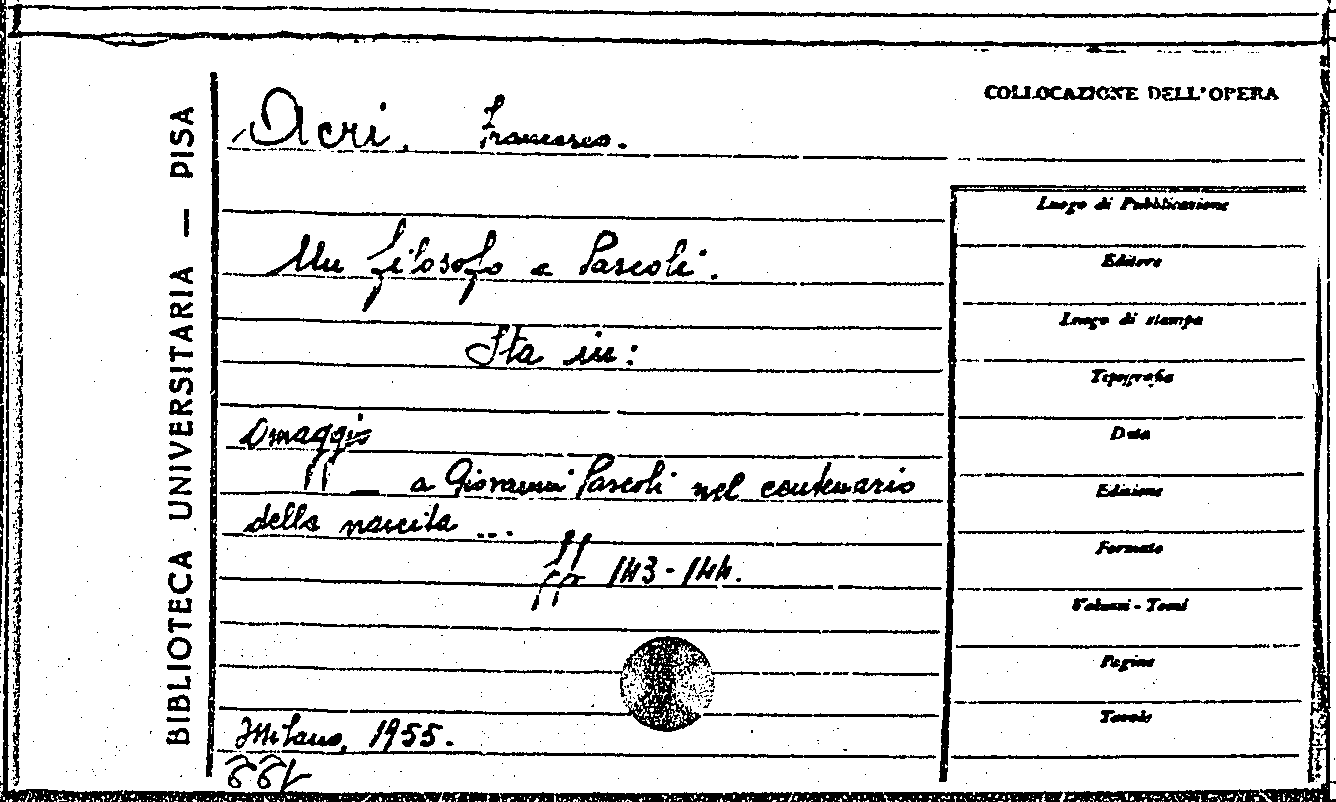 BIBLIOTECA UNIVERSITARIA — PISA
Acri. Francesco.
Un filosofo a Pascoli.
Sta in:
Omaggio
— a Giovanni Pascoli nel centenario
della nascita ...
pp 143-144.
Milano, 1955.
COLLOCAZIONE DELL'OPERA
Luogo di Pubblicazione
Editore
Luogo di stampa
Tipografia
Data
Edizione
Formato
Volumi - Tomi
Pagine
Tavole